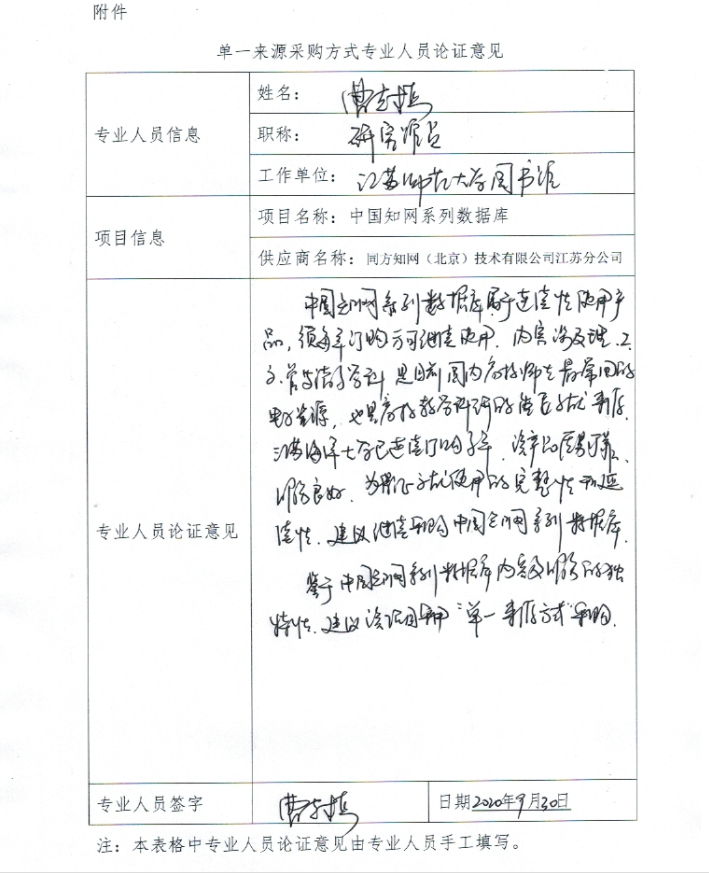 附件
单一来源采购方式专业人员论证意见
专业人员信息
姓名：曹志梅
职称：研究馆员
工作单位：江苏师范大学图书馆
项目信息
项目名称：中国知网系列数据库
供应商名称：同方知网（北京）技术有限公司江苏分公司
专业人员论证意见
中国知网系列数据库属于连续性使用产
品，须每年订购方可继续使用．内容涉及理．工．
文．管等诸多学科 是目前国内高校师生最常用的
电子资源，也是高校教学科研的
江苏海洋大学已连续订购多年．该产品质量可靠、
服务良好．为保证使用的完整性和延
续性．建议继续采购中国知网系列数据库．
鉴于中国知网系列数据库内容及服务的独
特性．建议该项目采用“单一来源方式”采购．
专业人员签字
曹志梅
日期2020年9月30日
注：本表格中专业人员论证意见由专业人员手工填写。